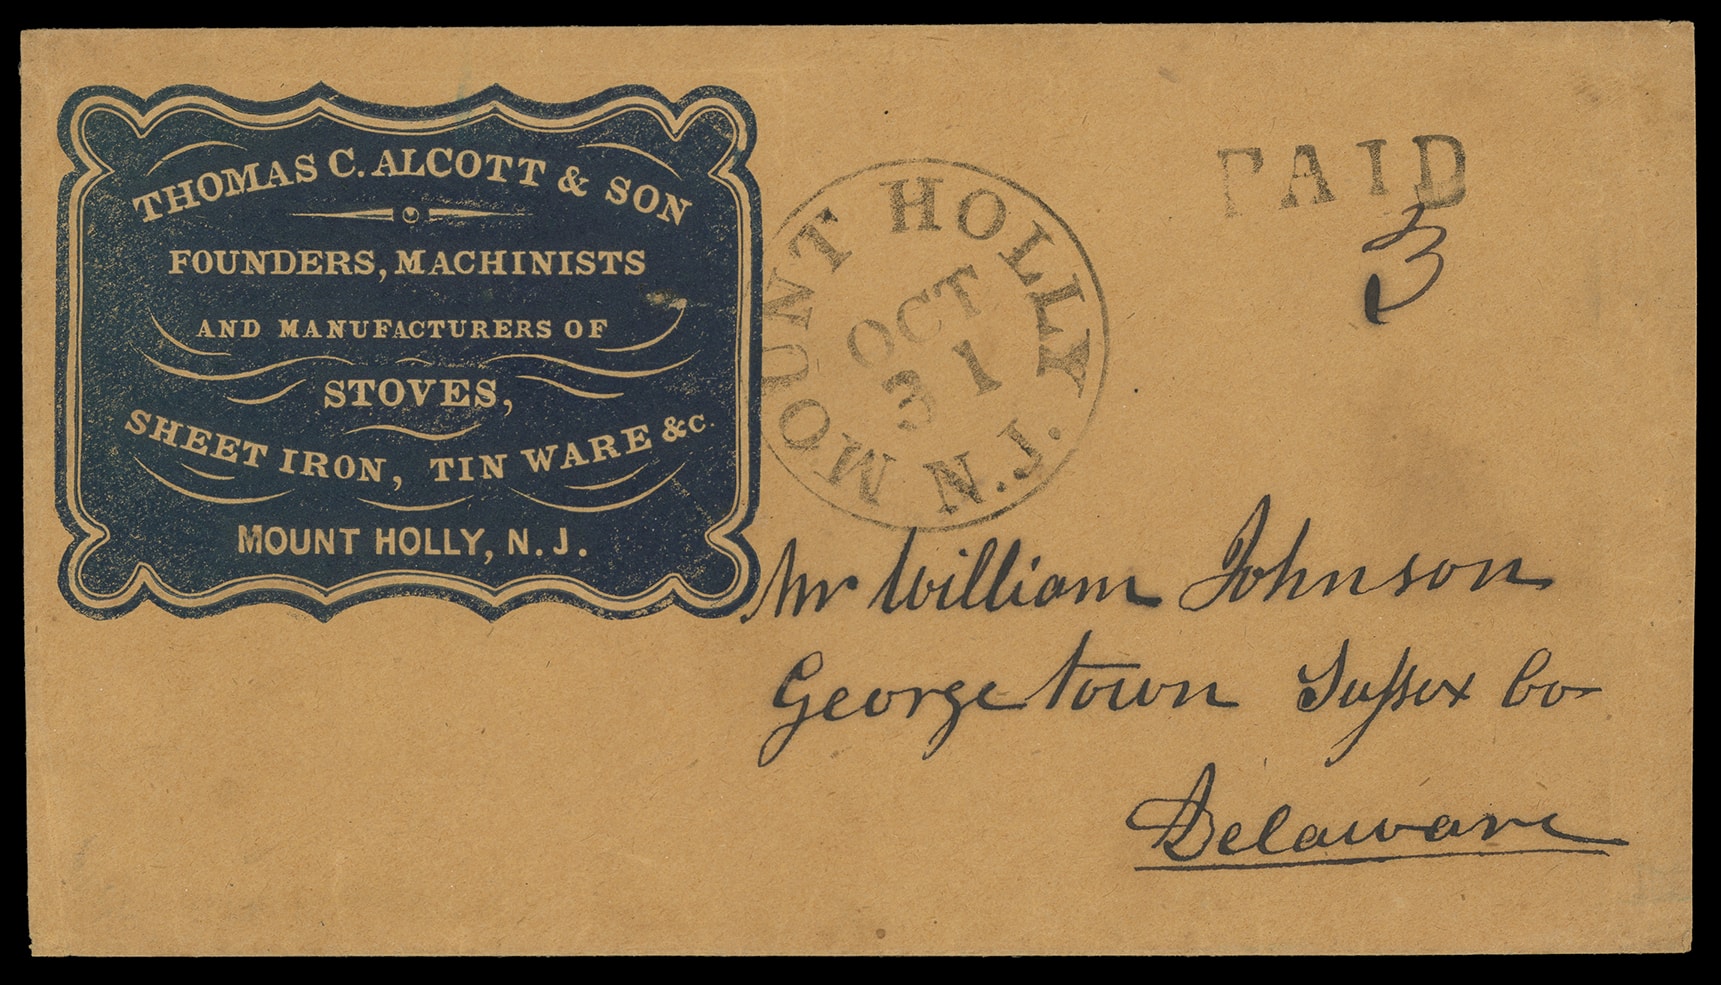 THOMAS C. ALCOTT & SON
FOUNDERS, MACHINISTS
AND MANUFACTURERS OF
STOVES,
SHEET IRON, TIN WARE &c.
MOUNT HOLLY, N. J.
MOUNT HOLLY
OCT
31
N.J.
PAID
3
Mr William Johnson
Georgetown Sussex Co
Delaware